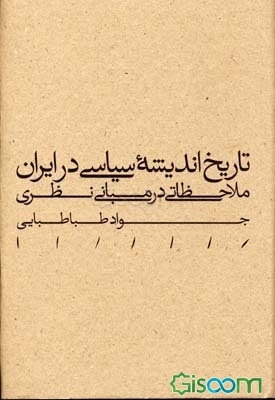 تاریخ اندیشهٔ سیاسی در ایران
ملاحظاتی در مبانی نظری
جواد طباطبایی
Gisoom
.com